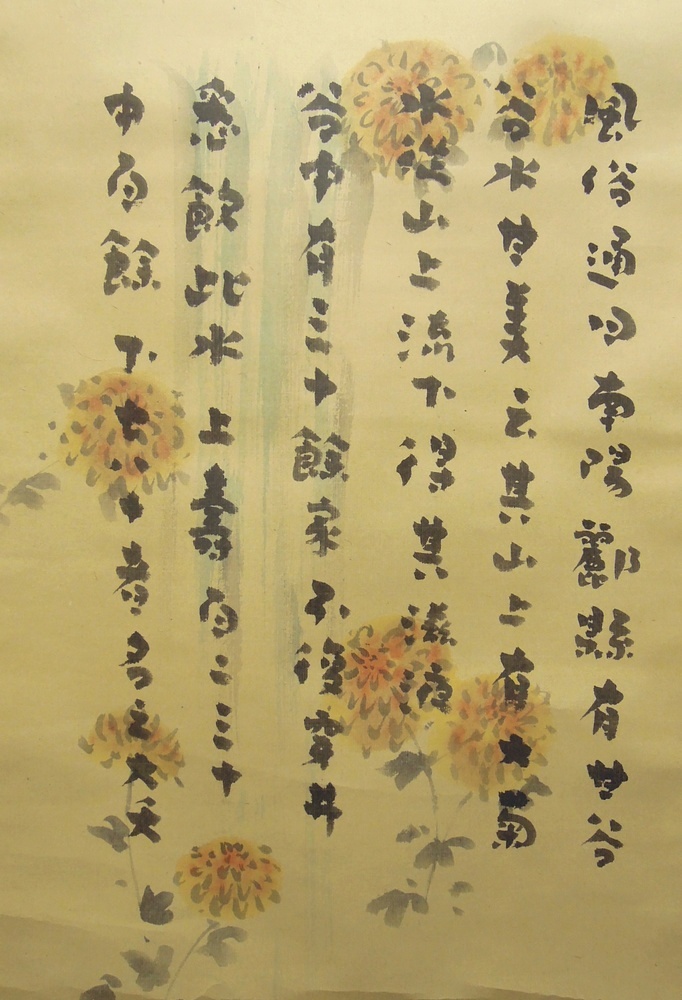 風俗通曰南陽酈縣有甘谷
谷水甘美云其山上有大菊
水從山上流下得其滋液
谷中有三十餘家不復穿井
悉飲此水上壽百二三十
中百餘下七八十者名之大夭